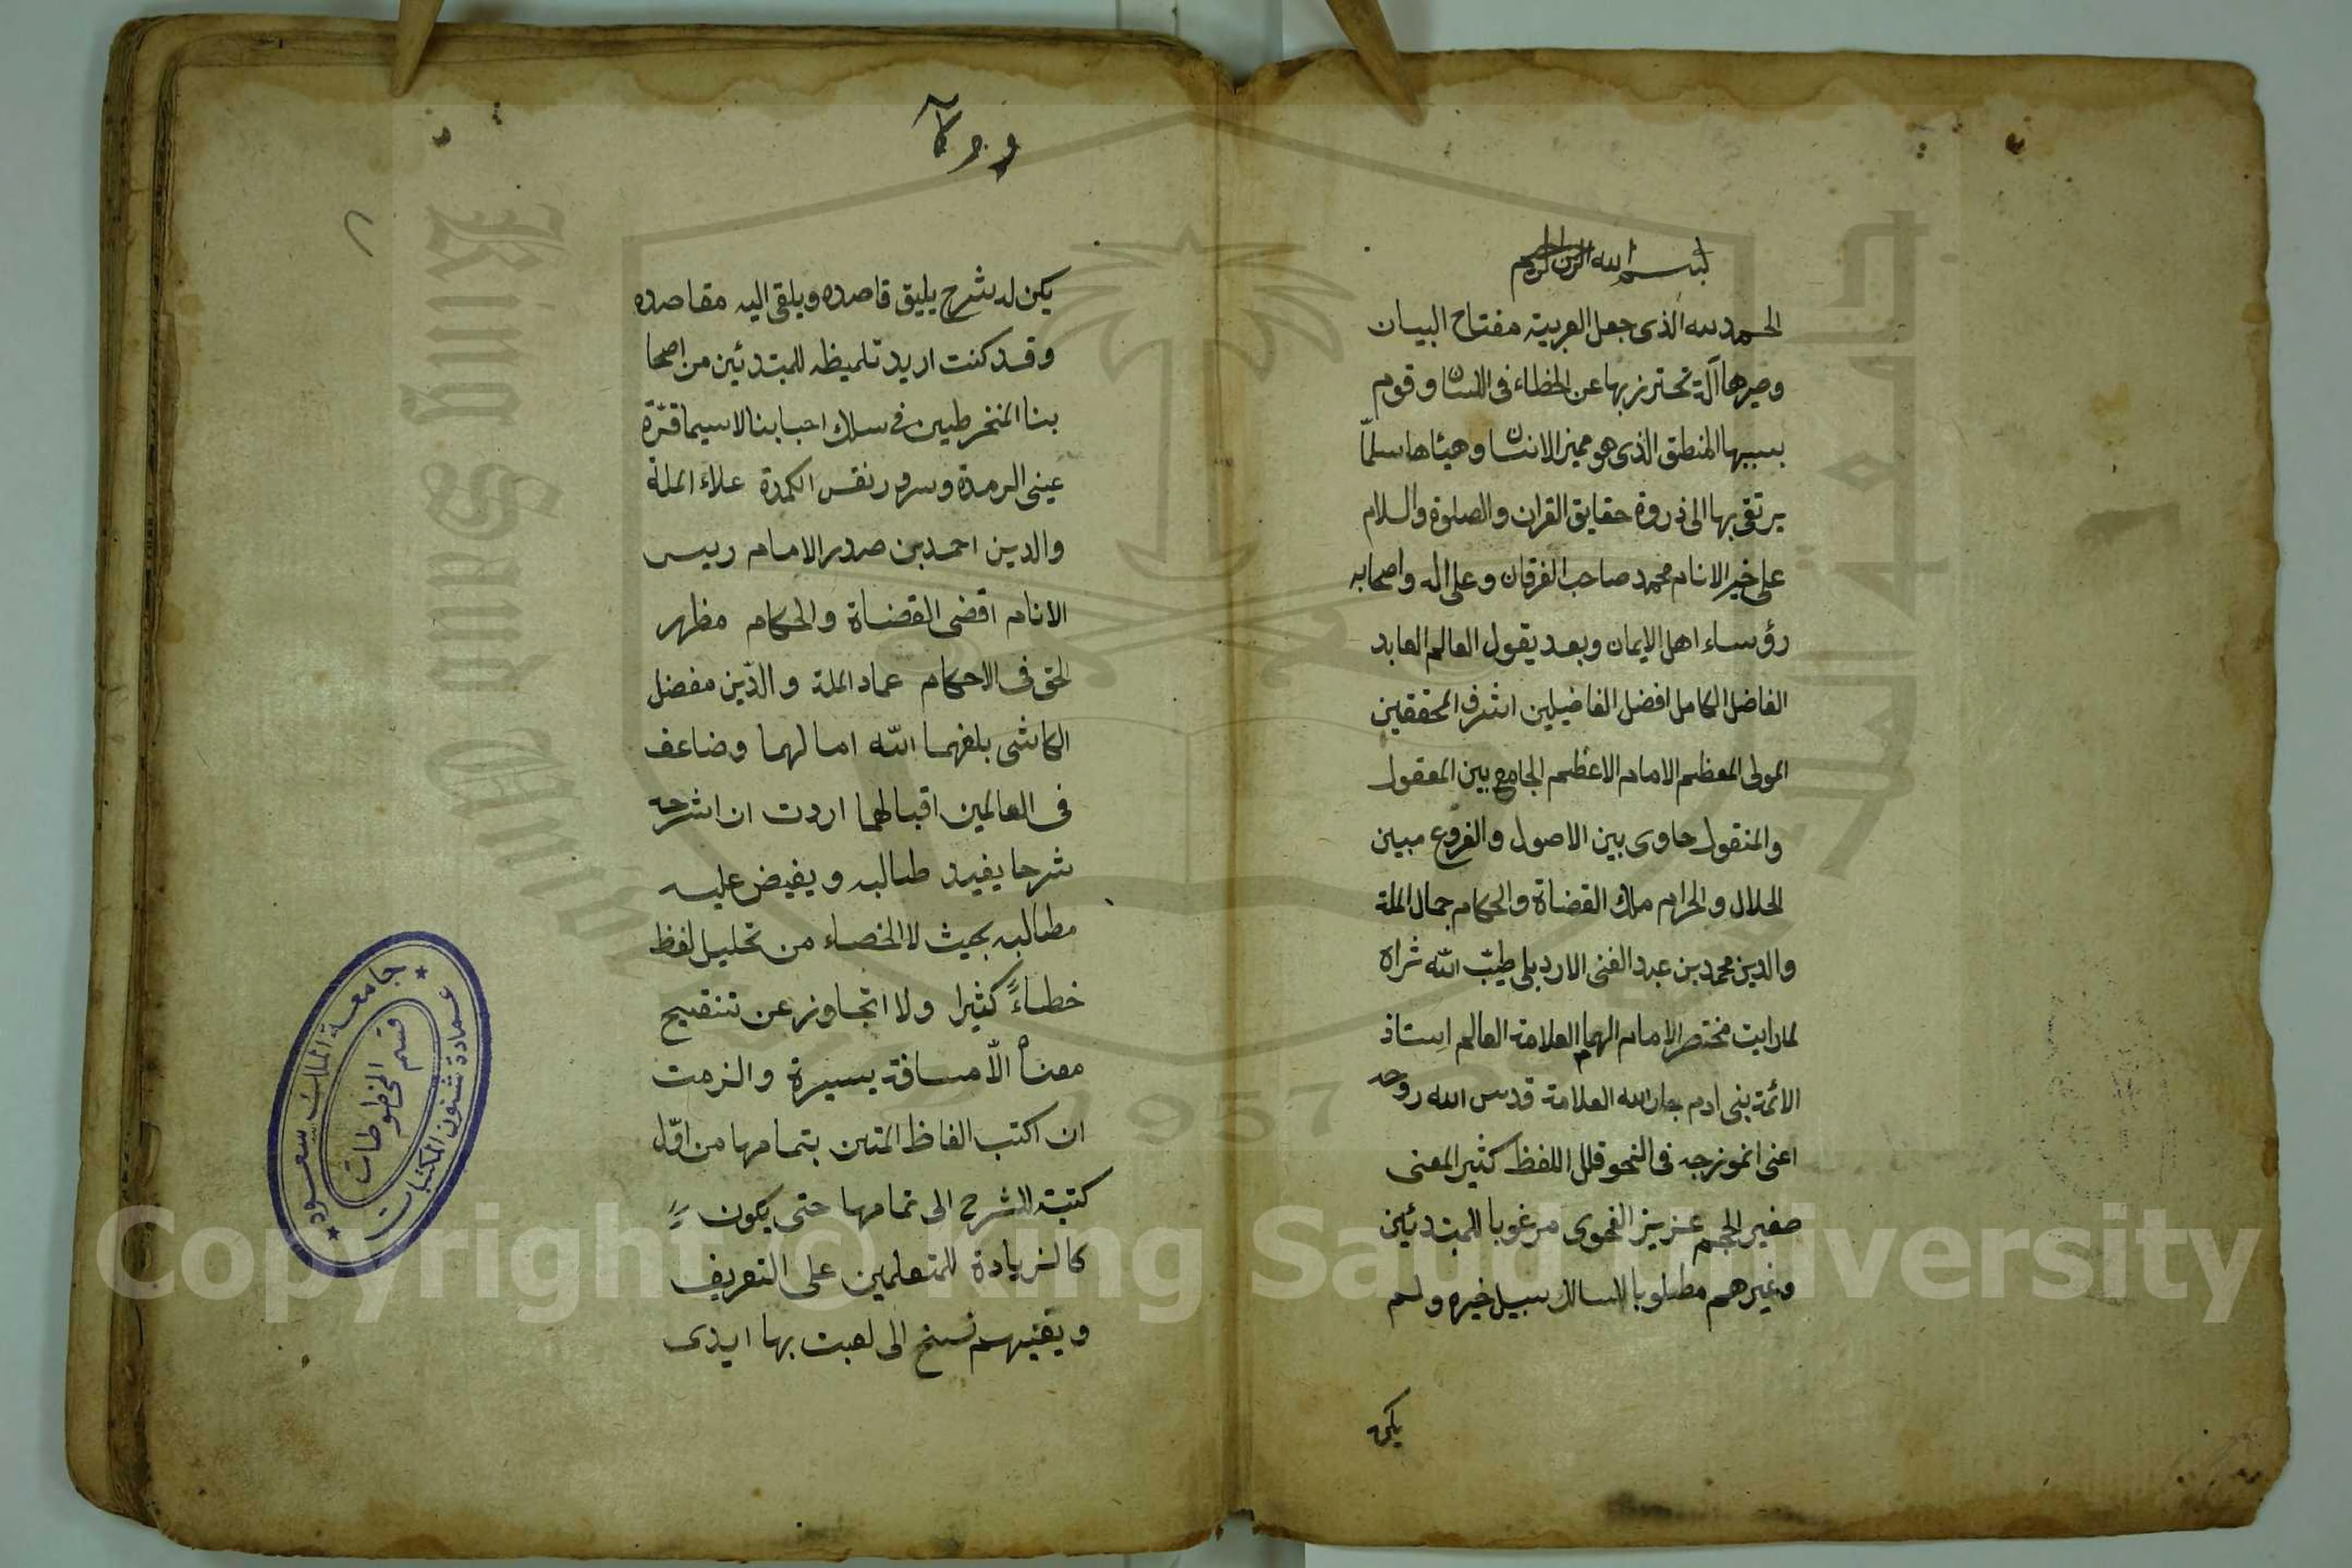 بسم الله الرحمن الرحيم
الحمد لله الذى جعل العربية مفتاح البيان
وصيرها آلة تحترز بها عن الخطاء فى اللسان وقوم
بسببها المنطق الذى هو مميز الانسان وهيئاها سلّما
يرتقى بها الى ذروة حقايق القران والصلوة والسلام
على خير الانام محمد صاحب الفرقان وعلى اله واصحابه
رؤساء اهل الايمان وبعد يقول العالم العابد
الفاضل الكامل افضل الفاضيلين اشرف المحققين
المولى المعظم الامام الاعظم الجامع بين المعقول
والمنقول حاوى بين الاصول والفروع مبين
الحلال والحرام ملك القضاة والحكام جمال الملة
والدين محمد بن عبد الغنى الاردبلى طيّب الله ثراه
لما رايت مختصر الامام الهمام العلامة العالم استاذ
الائمة بنى ادم جار الله العلامة قدس الله روحه
اعنى انموزجه فى النحو قلل اللفظ كثير المعنى
صغير الحجم عزيز الفحوى مرغوبا للمبتدئين
وغيرهم مطلوبا لسالك سبيل خيره ولم
يكن
يكن له شرح يليق قاصده ويلقى اليه مقاصده
وقد كنت اريد تلميظه للمبتدئين من اصحا
بنا المنخرطين فى سلك احبابنا لاسيما قرّة
عينى الرمدة وسرور نفس الكمدة علاء الملة
والدين احمد بن صدر الامام رييس
الانام اقضى القضاة والحكام مظهر
الحق فى الاحكام عماد الملة والدّين مفضل
الكاشى بلغهما الله امالهما وضاعف
فى العالمين اقبالهما اردت ان اشرحه
شرحا يفيد طالبه ويفيض عليه
مطالبه بحيث لا الخصاء من تحليل لفظ
خطاءً كثيرا ولا اتجاوز عن تنقيح
معناه الّا مسافة يسيرة والزمت
ان اكتب الفاظ المتن بتمامها من اوّل
كتبة الشرح الى تمامها حتى يكون
كالزيادة للمتعلمين على التعريف
ويغنيهم نسخ الى لعبت بها ايدى
جامعة الملك سعود
عمادة شئون المكتبات
قسم المخطوطات
King Saud Univer
1957
Copyright © King Saud University